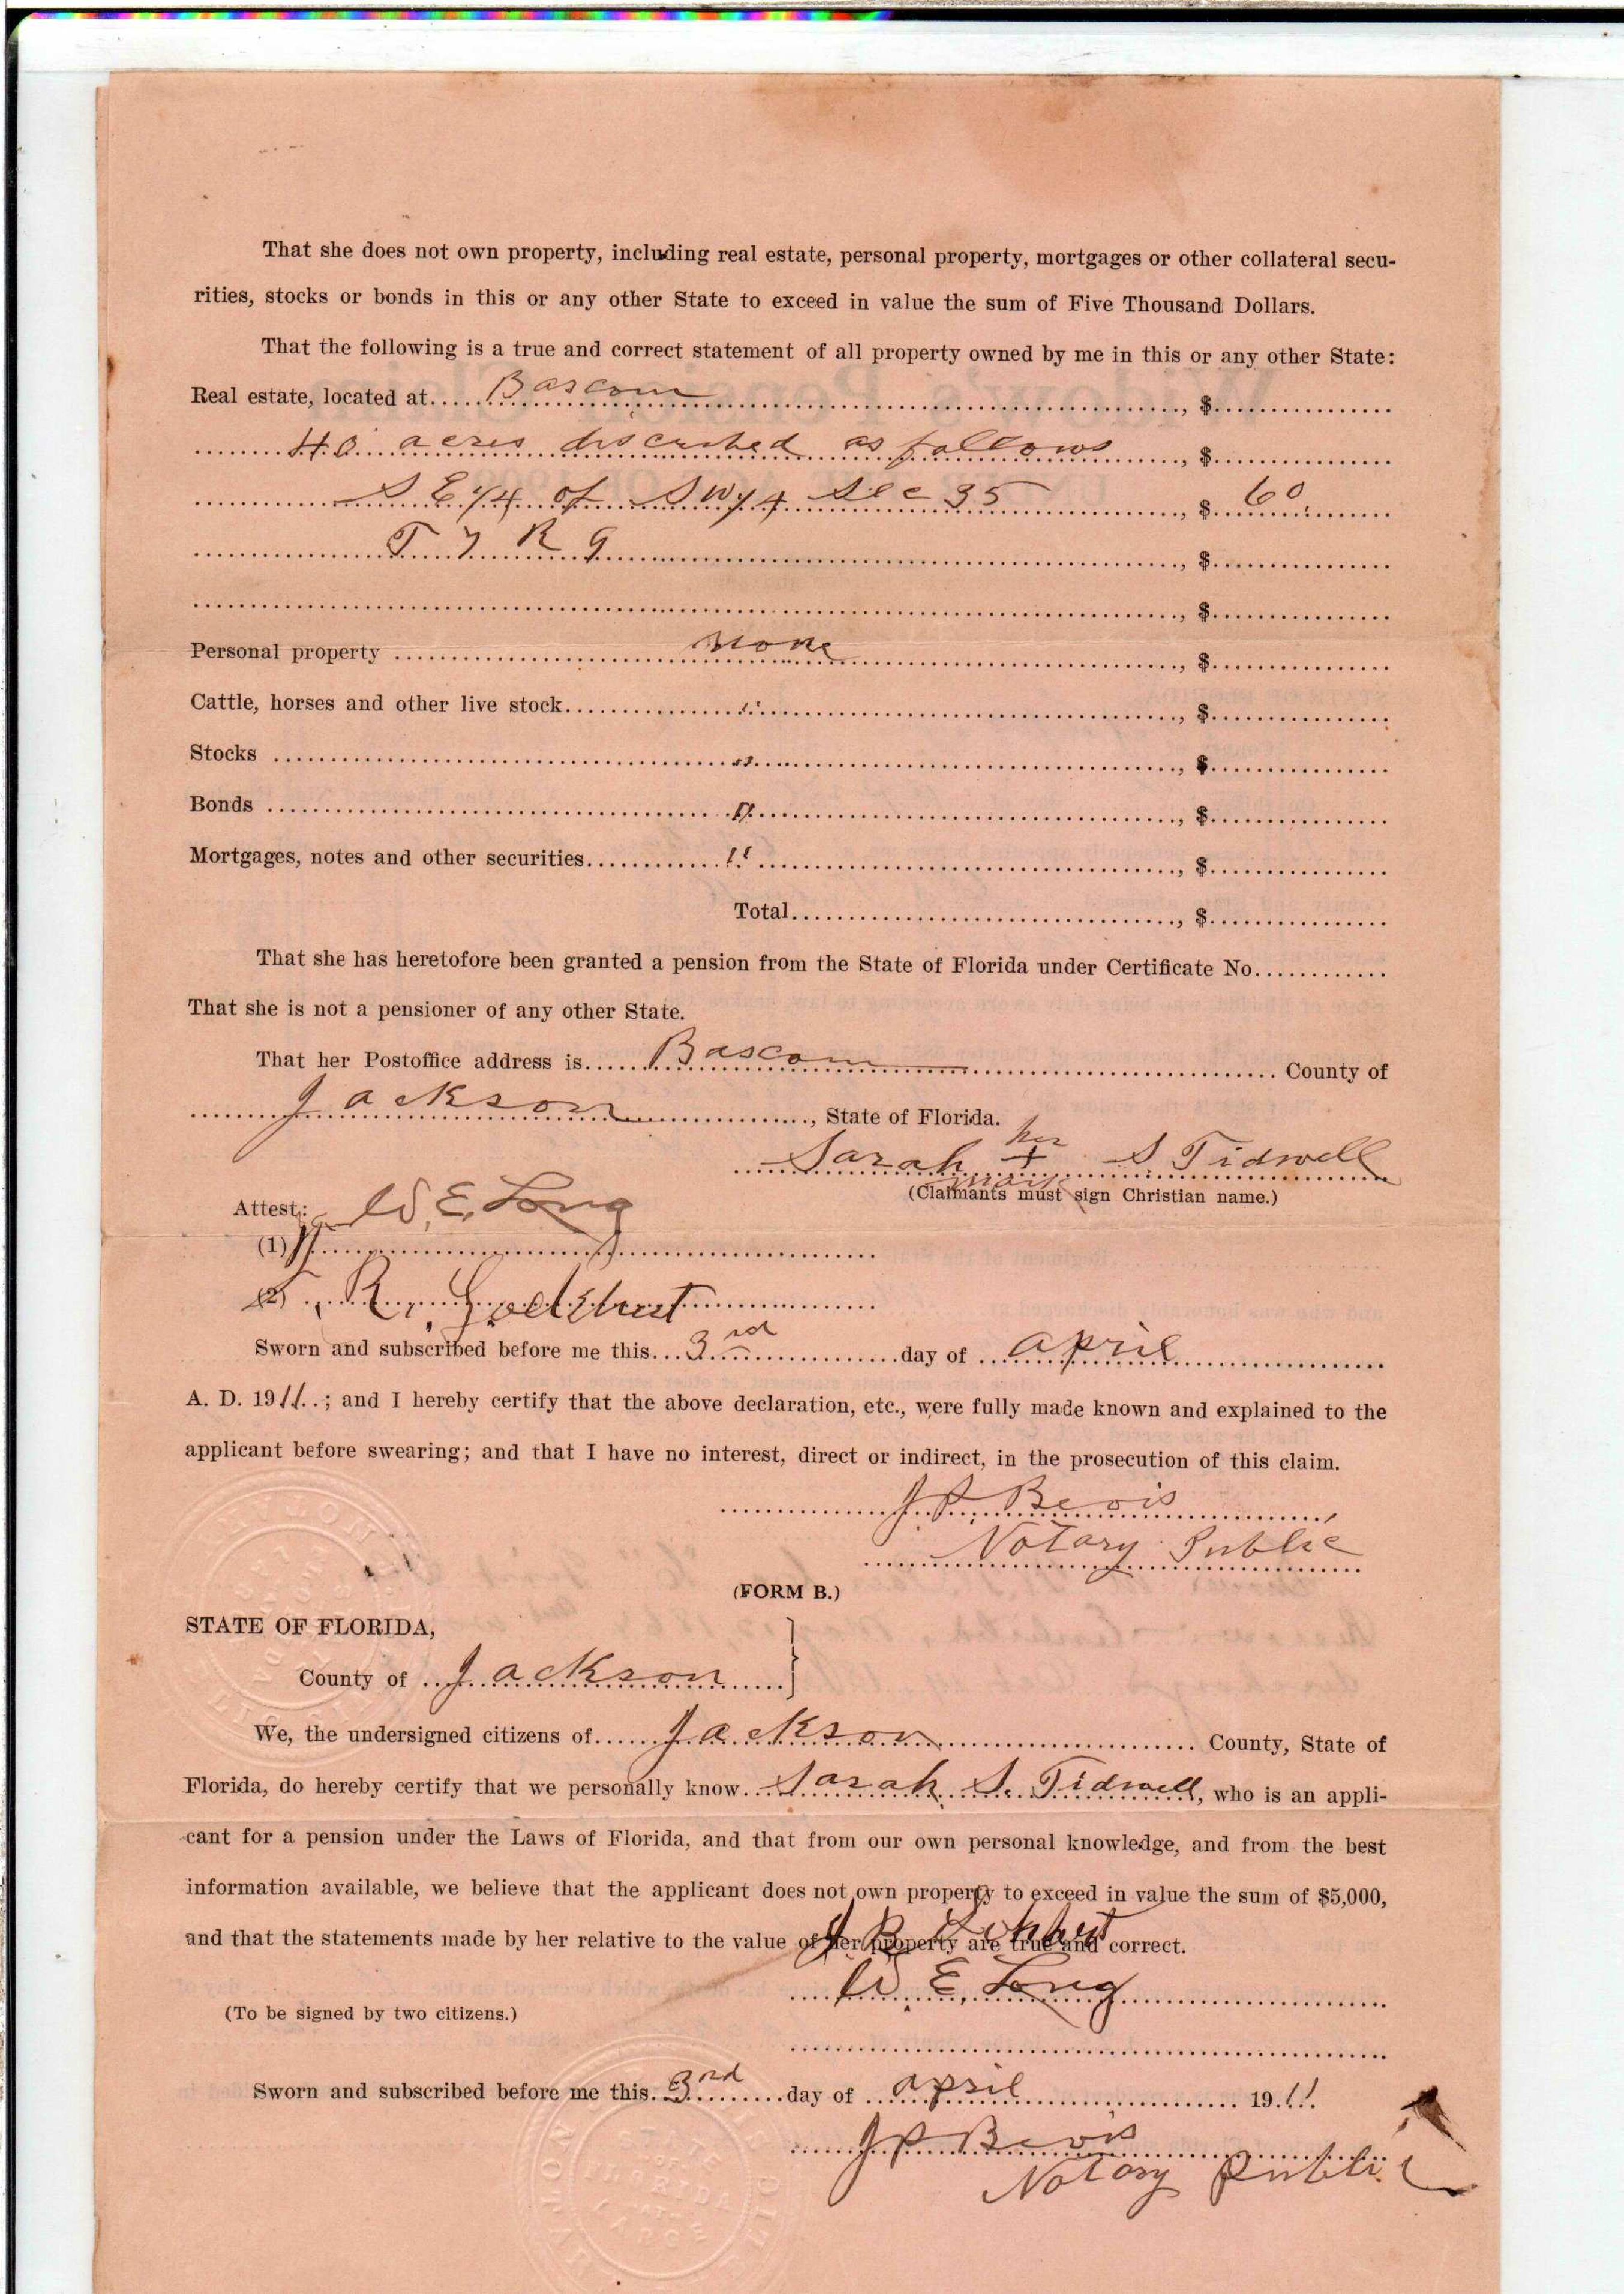 That she does not own property, including real estate, personal property, mortgages or other collateral secu-
rities, stocks or bonds in this or any other State to exceed in value the sum of Five Thousand Dollars.
That the following is a true and correct statement of all property owned by me in this or any other State:
Real estate, located at Bascom, $
40 acres discribed as follows, $
S E 1/4 of S W 1/4 Sec 35, $ 60
T 7 R 9, $
, $
Personal property none, $
Cattle, horses and other live stock ", $
Stocks ", $
Bonds ", $
Mortgages, notes and other securities ", $
Total, $
That she has heretofore been granted a pension from the State of Florida under Certificate No.
That she is not a pensioner of any other State.
That her Postoffice address is Bascom County of
Jackson, State of Florida.
her
Sarah + S Tidwell
mark
(Claimants must sign Christian name.)
Attest: W. E. Long
(1)
(2) R.
Sworn and subscribed before me this 3rd day of April
A. D. 1911; and I hereby certify that the above declaration, etc., were fully made known and explained to the
applicant before swearing; and that I have no interest, direct or indirect, in the prosecution of this claim.
J P Bevis
Notary Public
(FORM B.)
STATE OF FLORIDA,
County of Jackson }
We, the undersigned citizens of Jackson County, State of
Florida, do hereby certify that we personally know Sarah S. Tidwell, who is an appli-
cant for a pension under the Laws of Florida, and that from our own personal knowledge, and from the best
information available, we believe that the applicant does not own property to exceed in value the sum of $5,000,
and that the statements made by her relative to the value of her property are true and correct.
W. E. Long
(To be signed by two citizens.)
Sworn and subscribed before me this 3rd day of April 1911
J P Bevis
Notary Public